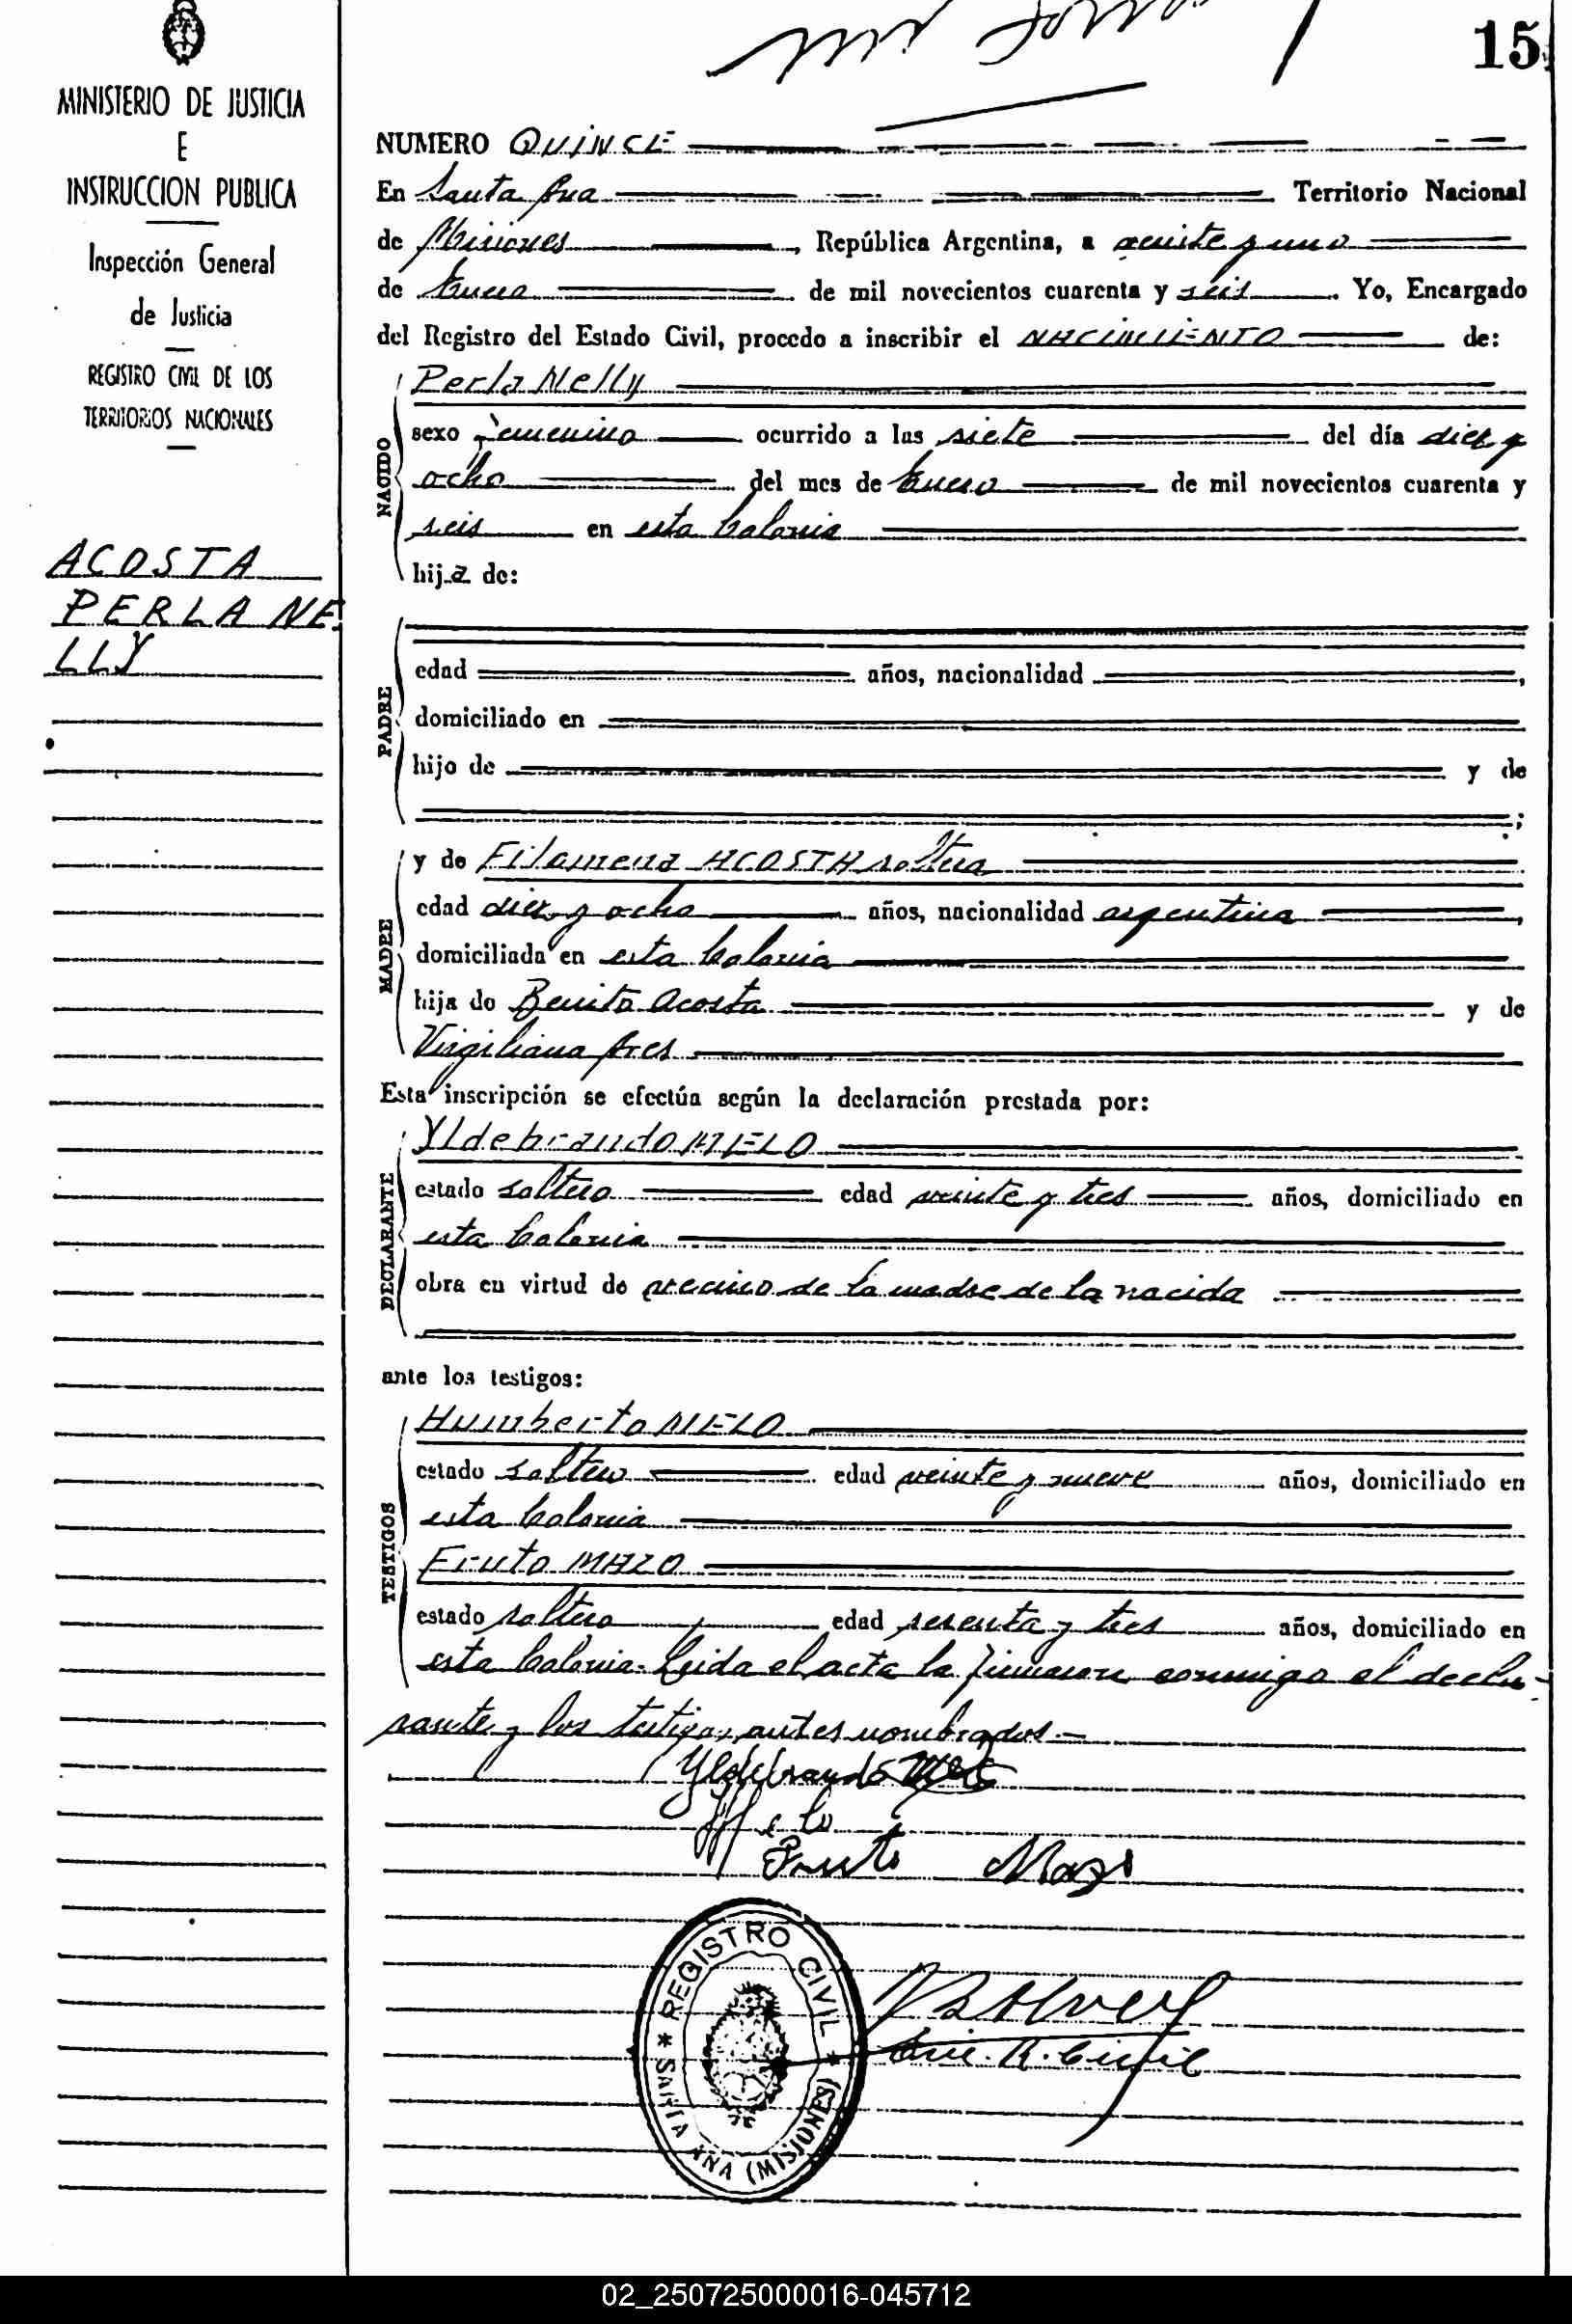 15
MINISTERIO DE JUSTICIA
E
INSTRUCCION PUBLICA
Inspección General
de Justicia
REGISTRO CIVIL DE LOS
TERRITORIOS NACIONALES
ACOSTA
PERLA NE
LLY
NUMERO QUINCE
En Santa Ana Territorio Nacional
de Misiones, República Argentina, a veinte y uno
de Enero de mil novecientos cuarenta y seis. Yo, Encargado
del Registro del Estado Civil, procedo a inscribir el NACIMIENTO de:
NACIDO
Perla Nelly
sexo femenino ocurrido a las siete del día diez y
ocho del mes de Enero de mil novecientos cuarenta y
seis en esta Colonia
hija de:
PADRE
edad años, nacionalidad ,
domiciliado en
hijo de y de
;
MADRE
y de Filomena ACOSTA soltera
edad diez y ocho años, nacionalidad argentina ,
domiciliada en esta Colonia
hija de Benito Acosta y de
Virgiliana Ares
Esta inscripción se efectúa según la declaración prestada por:
DECLARANTE
Yldebrando MELO
estado soltero edad veinte y tres años, domiciliado en
esta Colonia
obra en virtud de vecino de la madre de la nacida
ante los testigos:
TESTIGOS
Humberto MELO
estado soltero edad veinte y nueve años, domiciliado en
esta Colonia
Fruto MAZO
estado soltero edad sesenta y tres años, domiciliado en
esta Colonia. Leida el acta la firmaron conmigo el decla-
rante y los testigos antes nombrados.-
Yldebrando Melo
H Melo
Fruto Mazo
REGISTRO CIVIL
* SANTA ANA (MISIONES) *
Enc. R. Civil
02_250725000016-045712